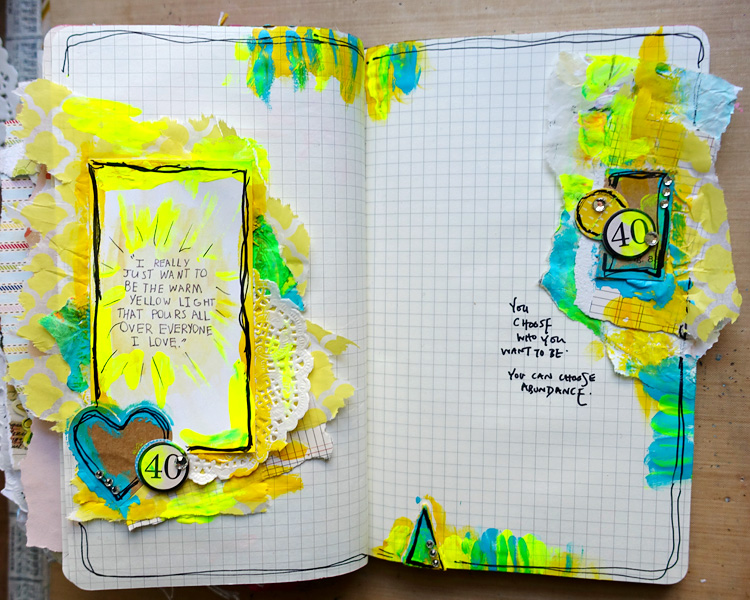 "I REALLY
JUST WANT TO
BE THE WARM
YELLOW LIGHT
THAT POURS ALL
OVER EVERYONE
I LOVE."
40
40
YOU
CHOOSE
WHO YOU
WANT TO BE.
YOU CAN CHOOSE
ABUNDANCE.